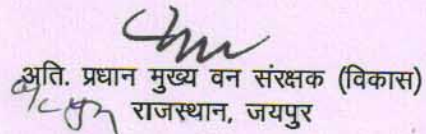 अति. प्रधान मुख्य वन संरक्षक (विकास)
राजस्थान, जयपुर